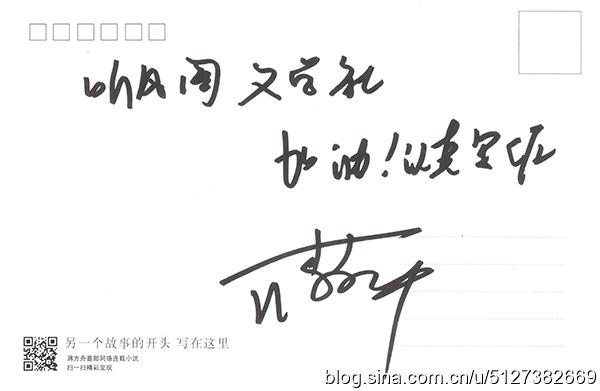 听风阁 文学社
加油!
另一个故事的开头 写在这里
蒋方舟首部网络连载小说
扫一扫精彩呈现
blog.sina.com.cn/u/5127382669